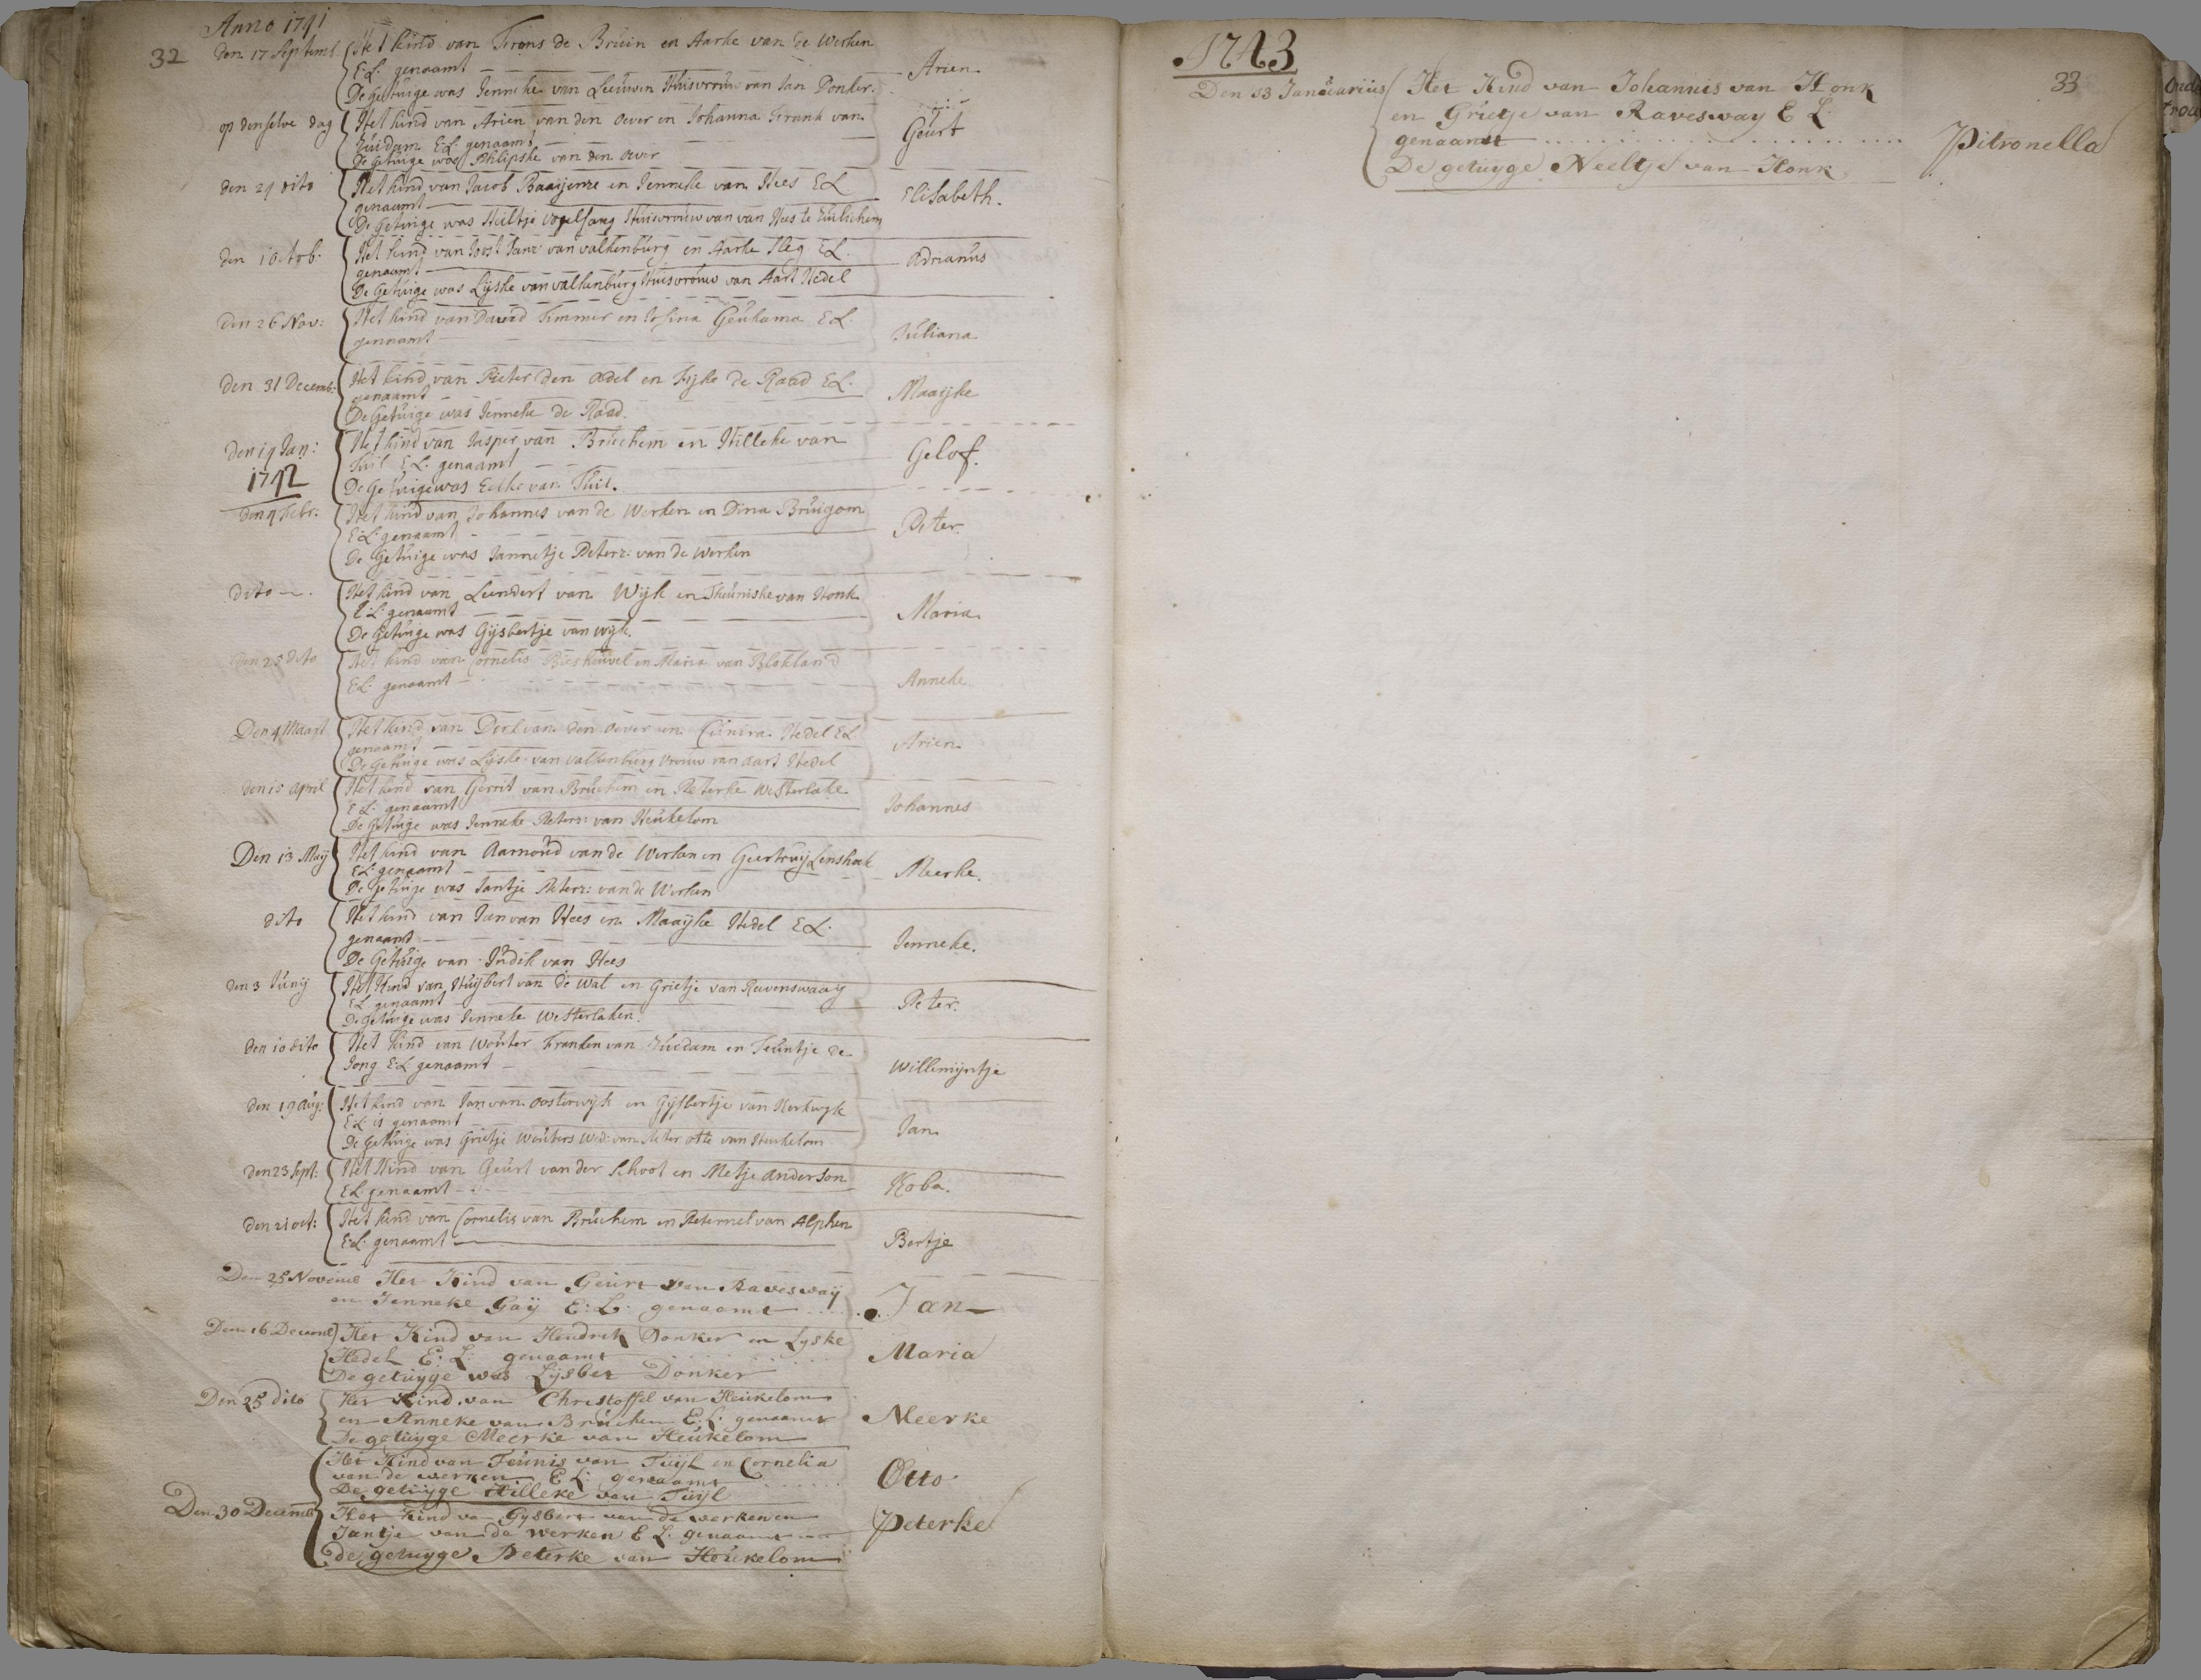 Anno 1741
32
den 17 Septemb. Het kind van Tirons de Bruin en Aarke van de Werken
E:L: genaamt Arien
De Getuige was Jenneke van Leeuwen Huisvrouw van Jan Donker.
op denselve dag Het kind van Arien van den Oever en Johanna Frank van
Zuidam E:L: genaamt Geurt
De Getuige was Philipske van den Oever
den 24 dito Het kind van Jacob Baaijense en Jenneke van Hees E:L
genaamt Elisabeth.
De Getuige was Hiltje Vogelsang Huisvrouw van van Hees te Zuilichem
den 1 Octob. Het kind van Joost Janz: van Valkenburg en Aarke Steg E:L.
genaamt Adrianus
De Getuige was Lijske van Valkenburg Huisvrouw van Aart Hedel
den 26 Nov: Het kind van David Timmer en Josina Geukama E:L.
genaamt Juliana
den 31 Decemb: Het kind van Pieter den Adel en Fijke de Raad E:L.
genaamt Maaijke
De Getuige was Jenneke de Raad.
den 14 Jan: Het kind van Jasper van Bruchem en Hilleke van
1742 Tuil E:L. genaamt Gelof.
De Getuige was Eelke van Tuil.
den 4 Febr. Het kind van Johannes van de Werken en Dina Bruigom
E:L: genaamt Peter.
De Getuige was Jannetje Peterz: van de Werken
dito Het kind van Leendert van Wijk en Theuniske van Honk
E:L: genaamt Maria
De Getuige was Gijsbertje van Wijk.
den 25 dito Het kind van Cornelis Biesheuvel en Maria van Blokland
E:L: genaamt Anneke
Den 4 Maart Het kind van Derk van den Oever en Cunira Hedel E:L
genaamt Arien
De Getuige was Lijske van Valkenburg vrouw van Aart Hedel
den 15 April Het kind van Gerrit van Bruchem en Peterke Westerlake
E:L: genaamt Johannes
De Getuige was Jenneke Peters: van Heukelom
Den 13 Maij Het kind van Aarnoud van de Werken en Geertruij Lenshoek
E:L: genaamt Meerke.
De Getuige was Jantje Peterz: van de Werken
dito Het kind van Jan van Hees en Maaijke Hedel E:L.
genaamt Jenneke.
De Getuige van Judik van Hees
den 3 Junij Het Kind van Huijbert van de Wal en Grietje van Ravenswaaij
E:L genaamt Peter.
De Getuige was Jenneke Westerlaken.
den 10 dito Het kind van Wouter Franken van Zuidam en Teuntje de
Jong E:L genaamt Willemijntje
den 19 Aug: Het kind van Jan van Oosterwijk en Gijsbertje van Kerkwijk
E:L: is genaamt Jan
De Getuige was Grietje Wouters Wed: van Peter Otte van Heukelom
den 23 Sept: Het Kind van Geurt van der School en Metje Anderson
E:L genaamt Koba.
den 21 oct: Het kind van Cornelis van Bruchem en Peternel van Alphen
E:L: genaamt Bertje
Den 25 Novemb Het Kind van Geurt van Raveswaij
en Janneke Gaij E:L: genaamt Jan
Den 16 Decemb Het Kind van Hendrik Donker en Lyske
Hedel E:L: genaamt Maria
De getuyge was Lijsbet Donker
Den 25 dito Het Kind van Christoffel van Heukelom
en Anneke van Bruchem E:L: genaamt Meerke
De getuyge Meerke van Heukelom
Het Kind van Teunis van Tuyl en Cornelia
van de werken E L: genaamt Otto
De getuyge Hilleke van Tuyl
Den 30 Decemb Het Kind va Gysbert van de werken en
Jantje van de werken E L: genaamt Peterke
De getuyge Peterke van Heukelom
1743
33
Den 13 Januarius Het Kind van Johannis van Honk
en Grietje van Ravesway E L:
genaamt Pitronella
De getuyge Neeltje van Honk